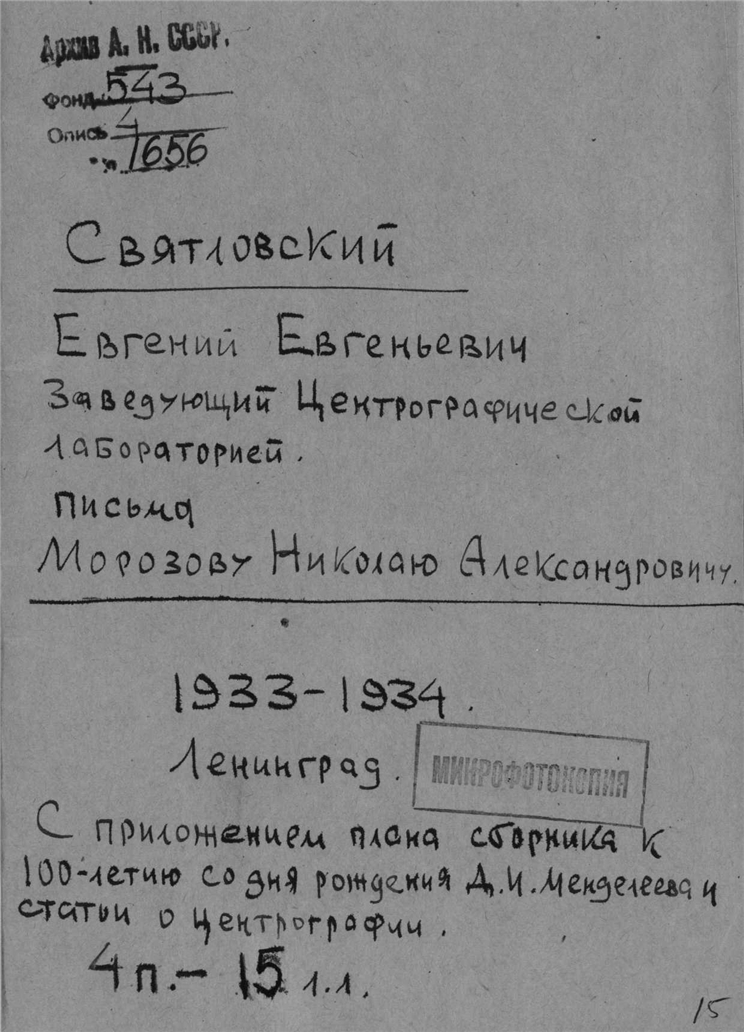 Архив А. Н. СССР.
Фонд 543
Опись 4
№ 1656
Святловский
Евгений Евгеньевич
Заведующий Центрографической
лабораторией.
письма
Морозову Николаю Александровичу.
1933-1934.
Ленинград.
МИКРОФОТОКОПИЯ
С приложением плана сборника к
100-летию со дня рождения Д.И.Менделеева и
статьи о центрографии.
4 п.- 15 л.л.
15